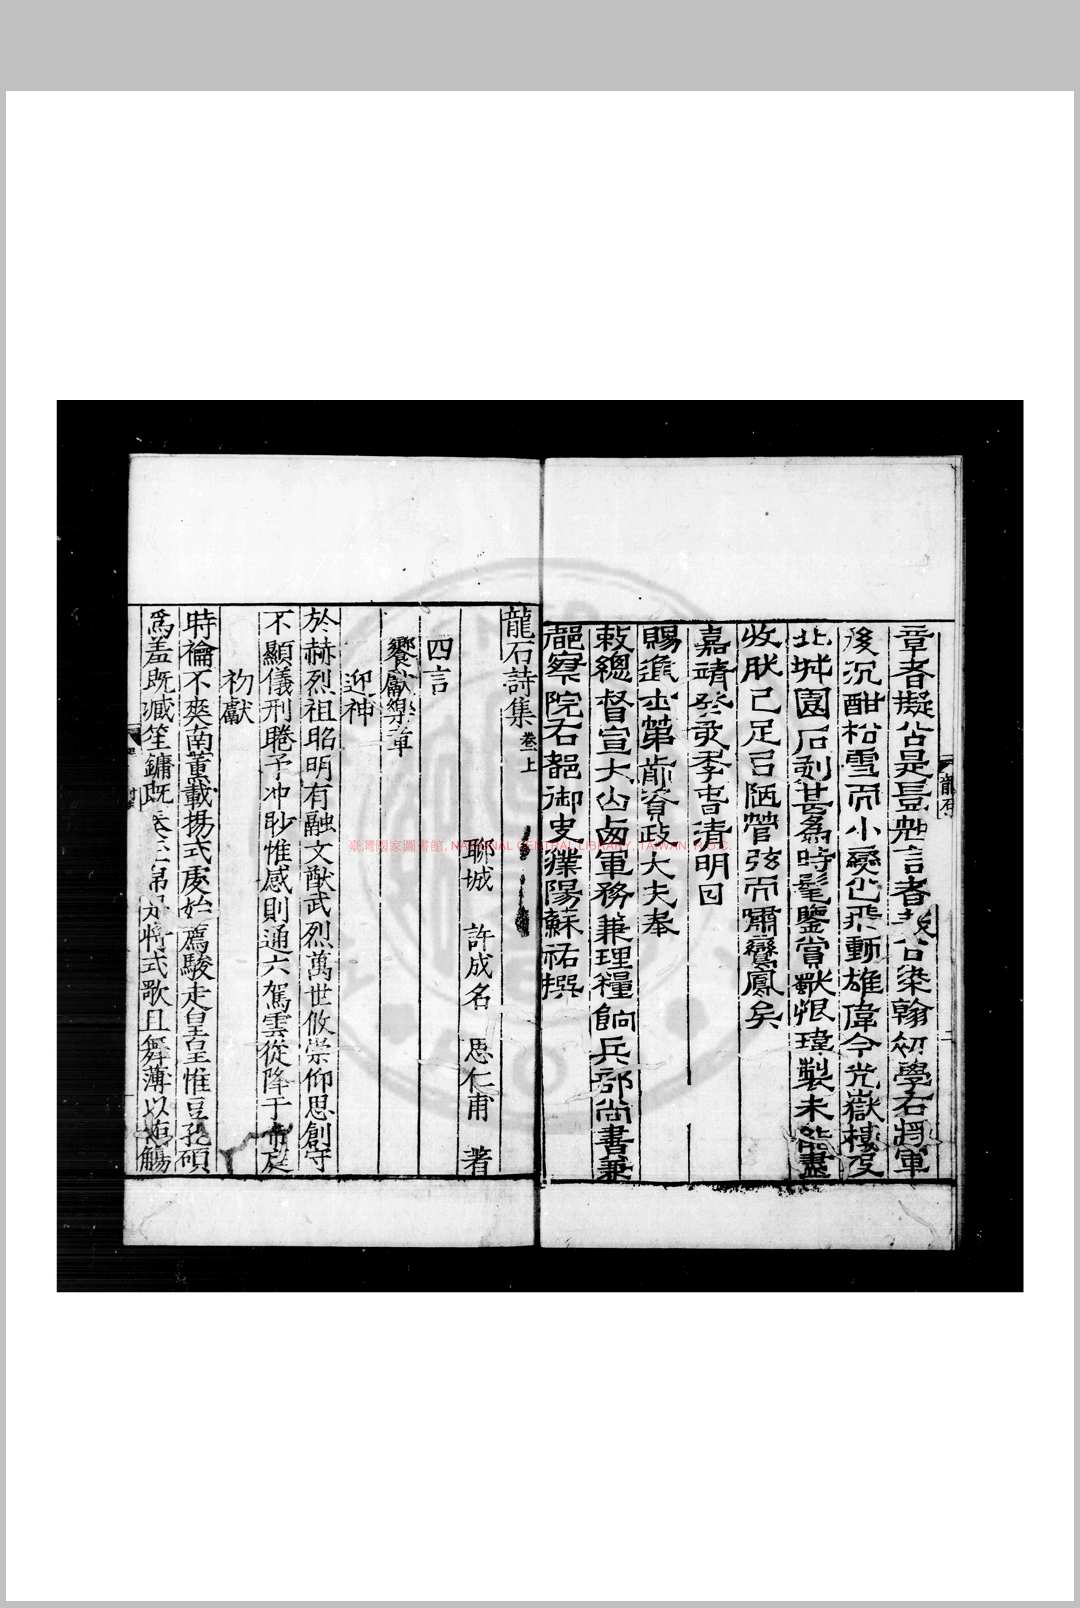 章者擬公是豈知言者哉公染翰初學右將軍
後沉酣松雪而小變化飛動雄偉今光嶽樓及
北城園石刻甚為時髦鑒賞獸恨瑋製未能盡
收肰已足召陋管弦而嘯鸞鳳矣
嘉靖癸亥季春清明日
賜進士第前資政大夫奉
敕總督宣大山西軍務兼理糧餉兵部尚書兼
都察院右都御史濮陽蘇祐撰
龍石
二
龍石詩集卷一上
聊城 許成名 思仁甫 著
四言
饗獻樂章
迎神
於赫烈祖昭明有融文猷武烈萬世攸崇仰思創守
不顯儀刑睠予冲眇惟感則通六駕雲從降于帝庭
初獻
時禴不爽南薰載揚式虔始薦駿走皇皇惟豆孔碩
為羞既臧笙鏞既式歌且舞薄以侑觴
臺灣國家圖書館, NATIONAL CENTRAL LIBRARY, TAIWAN, R.O.C.